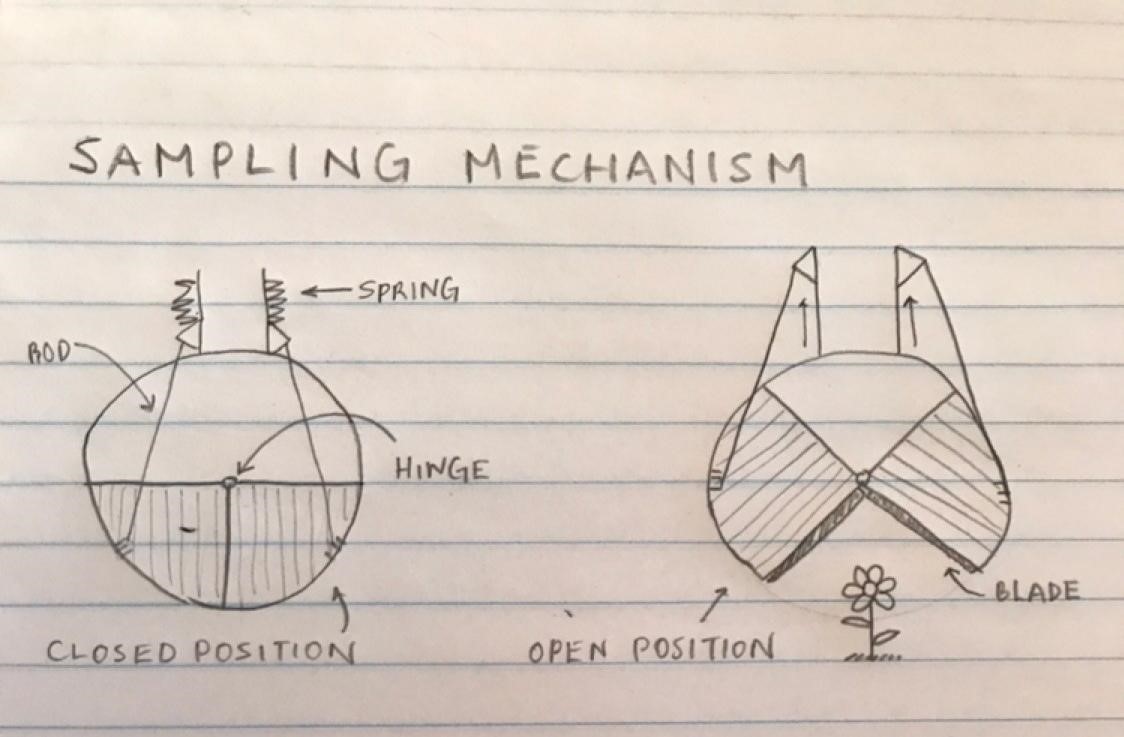 SAMPLING MECHANISM
SPRING
ROD
HINGE
BLADE
CLOSED POSITION
OPEN POSITION